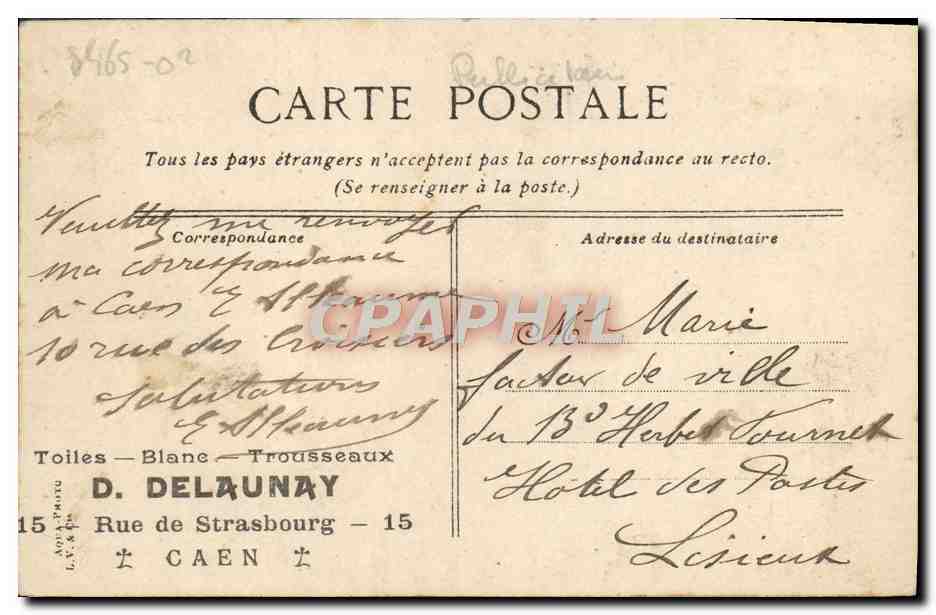 8465-02
CARTE POSTALE
Tous les pays étrangers n'acceptent pas la correspondance au recto.
(Se renseigner à la poste.)
Correspondance
Veuillez me renvoyer
ma correspondance
à Caen E
10 rue des Croisiers
Salutations
E
Toiles — Blanc — Trousseaux
D. DELAUNAY
15 Rue de Strasbourg — 15
CAEN
AQUA-PHOTO
L. V. & Cie
Adresse du destinataire
Mr Marie
facteur de ville
du Bd Herbet Fournet
Hôtel des Postes
Lisieux
CPAPHIL